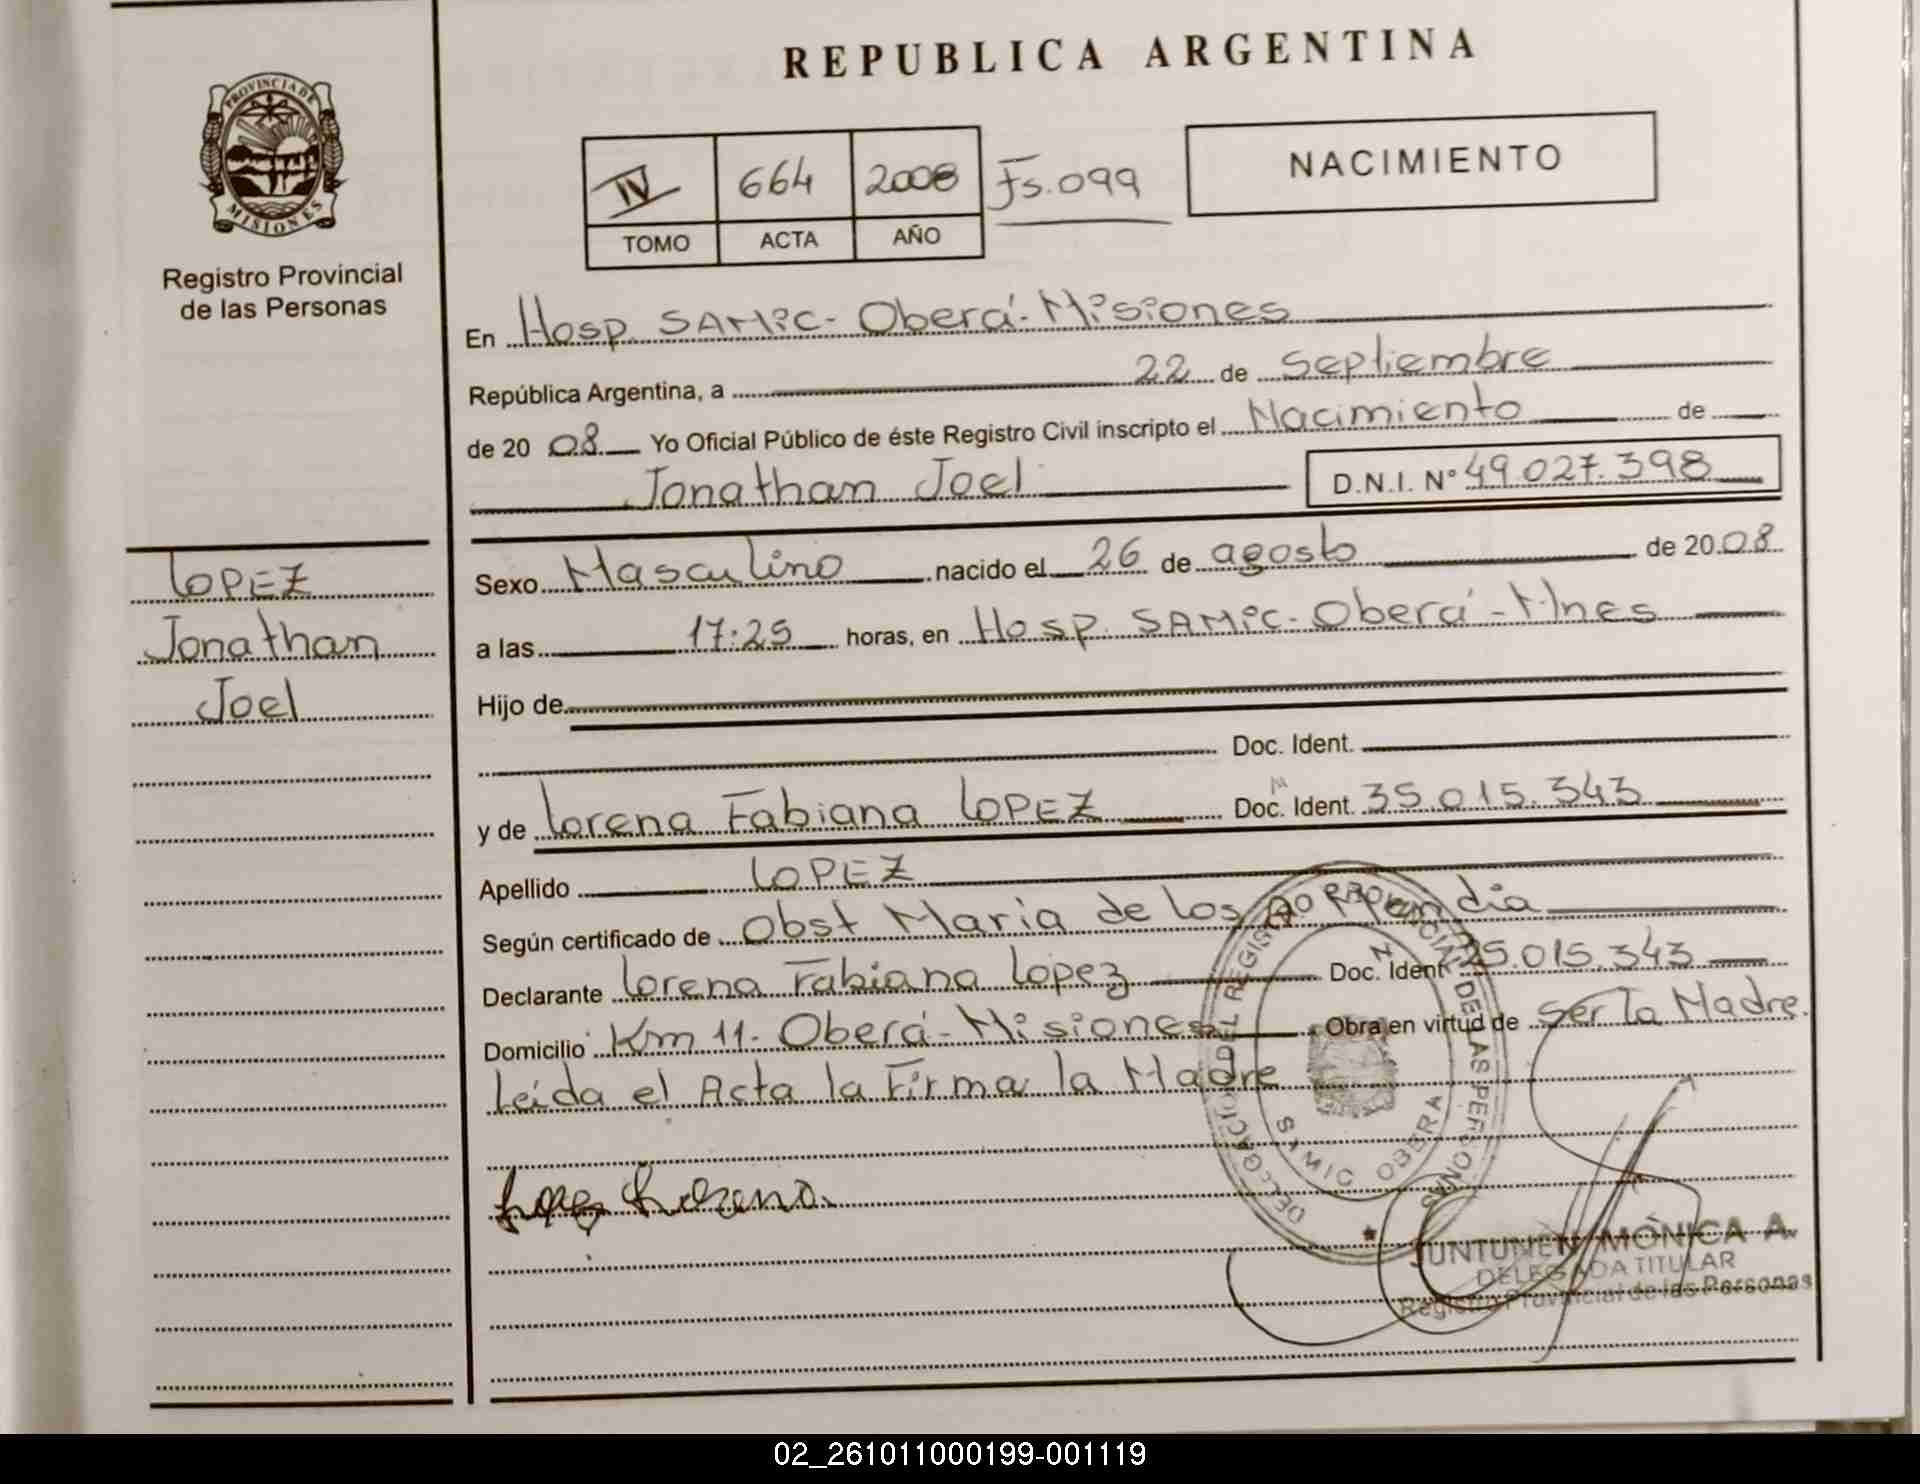 REPUBLICA ARGENTINA
PROVINCIA DE MISIONES
Registro Provincial
de las Personas
IV 664 2008 Fs. 099
TOMO ACTA AÑO
NACIMIENTO
En Hosp. SAMIC - Oberá - Misiones
República Argentina, a 22 de Septiembre
de 20 08 Yo Oficial Público de éste Registro Civil inscripto el Nacimiento de
Jonathan Joel D.N.I. Nº 49.027.398
LOPEZ
Jonathan
Joel
Sexo Masculino nacido el 26 de agosto de 20 08
a las 17:25 horas, en Hosp. SAMIC - Oberá - Mnes
Hijo de
Doc. Ident.
y de Lorena Fabiana LOPEZ Doc. Ident. 35.015.343
Apellido LOPEZ
Según certificado de Obst Maria de los A.
Declarante Lorena Fabiana Lopez Doc. Ident 015.343
Domicilio Km 11 - Oberá - Misiones Obra en virtud de ser la Madre.
Leída el Acta la Firma la Madre
Lopez Lorena
DELEGACION DEL REGISTRO PROVINCIAL DE LAS PERSONAS
SAMIC OBERA
JUNTUNEN MÓNICA A.
DELEGADA TITULAR
Registro Provincial de las Personas
02_261011000199-001119